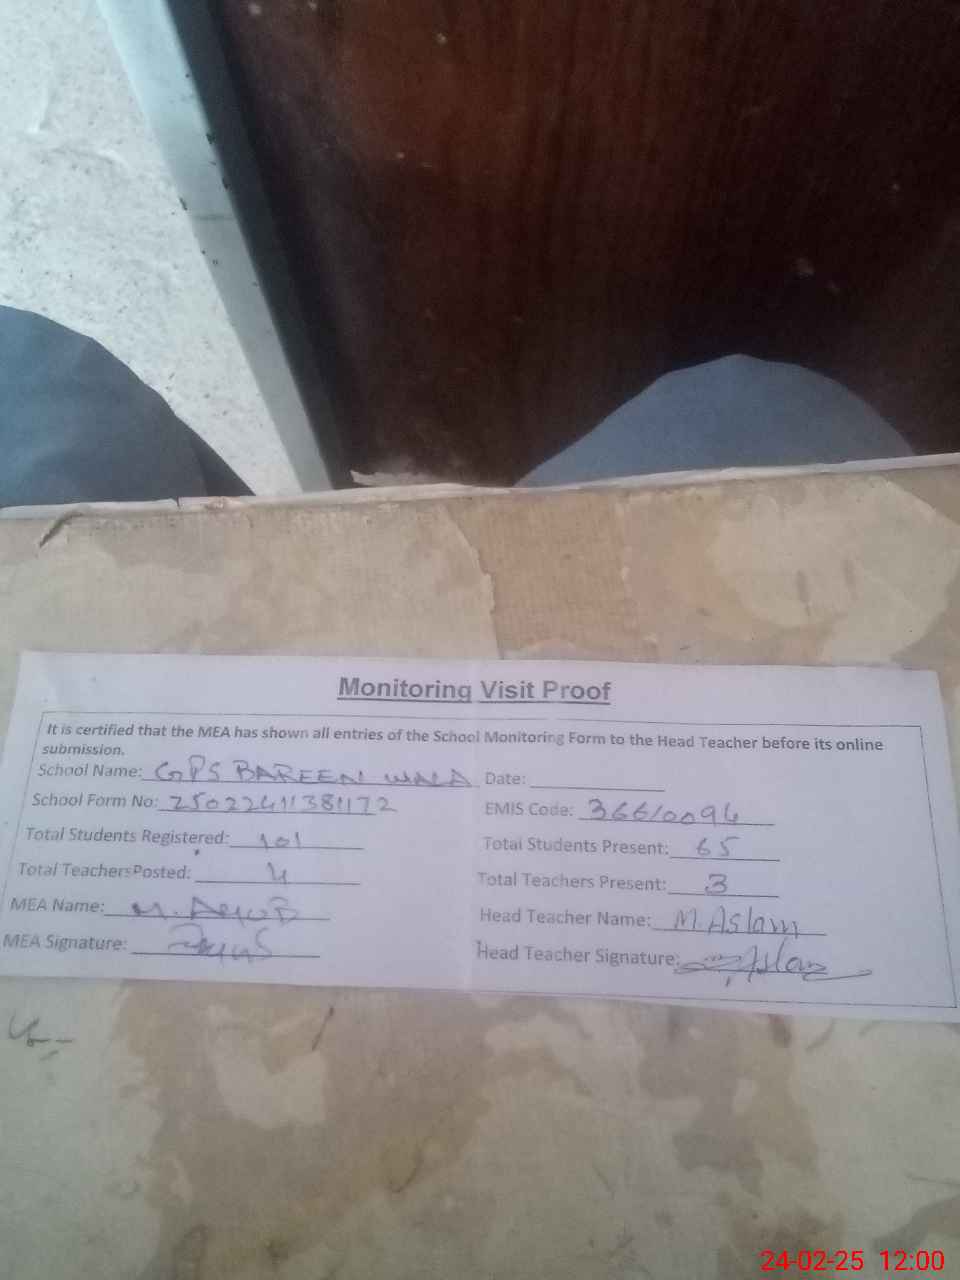 Monitoring Visit Proof
It is certified that the MEA has shown all entries of the School Monitoring Form to the Head Teacher before its online
submission.
School Name: GPS BAREEN WALA Date:
School Form No: 25022411381172 EMIS Code: 36610094
Total Students Registered: 101 Total Students Present: 65
Total Teachers Posted: 4 Total Teachers Present: 3
MEA Name: M. Ayub Head Teacher Name: M. Aslam
MEA Signature: Head Teacher Signature: Aslam
24-02-25 12:00